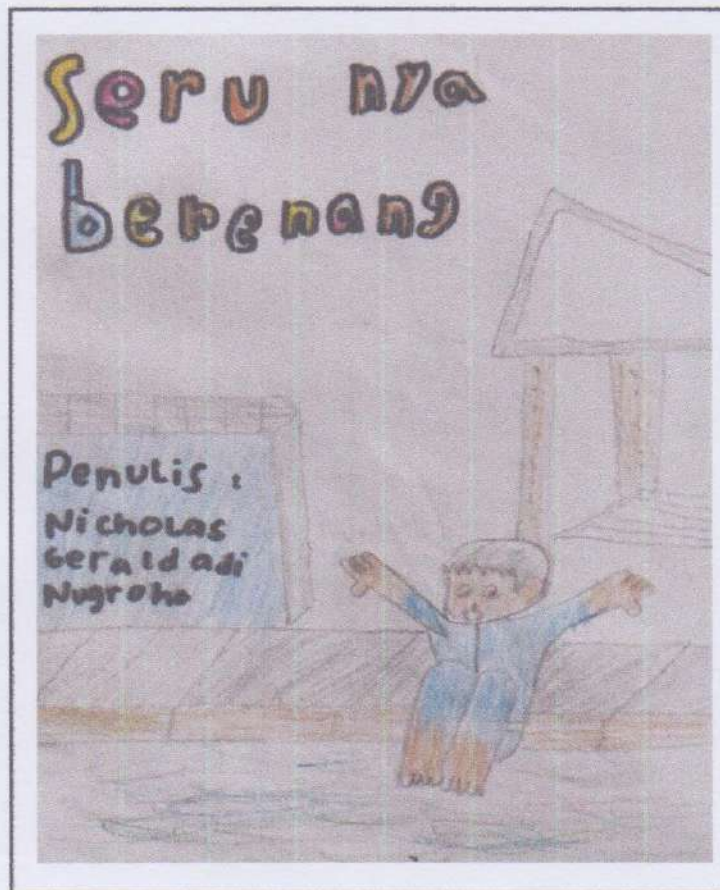 Seru nya
berenang
Penulis :
Nicholas
Gerald adi
Nugroho